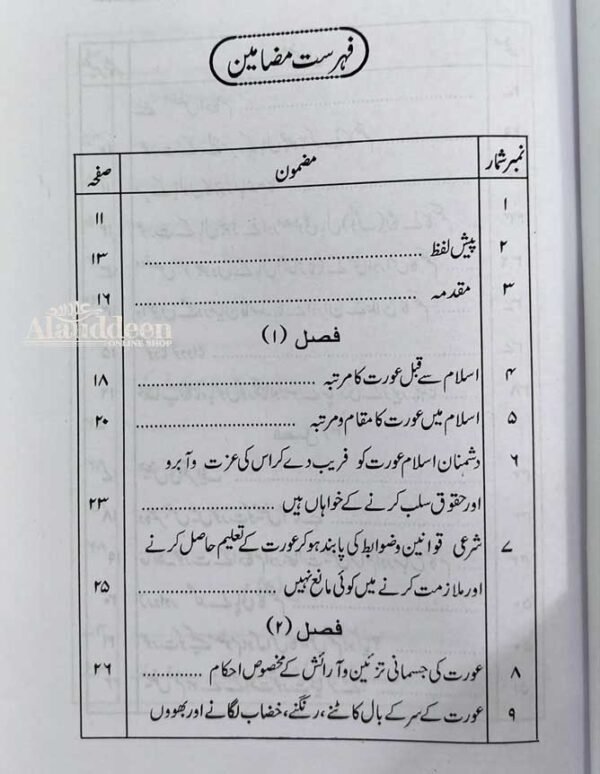 فہرست مضامین
نمبر شمار مضمون صفحہ
۱ ۱۱
۲ پیش لفظ ........................ ۱۳
۳ مقدمہ ........................ ۱۶
علاء الدین
Alauddeen
ONLINE SHOP
فصل (۱)
۴ اسلام سے قبل عورت کا مرتبہ ........................ ۱۸
۵ اسلام میں عورت کا مقام و مرتبہ ........................ ۲۰
۶ دشمنان اسلام عورت کو فریب دے کر اس کی عزت و آبرو
اور حقوق سلب کرنے کے خواہاں ہیں ........................ ۲۳
۷ شرعی قوانین و ضوابط کی پابند ہو کر عورت کے تعلیم حاصل کرنے
اور ملازمت کرنے میں کوئی مانع نہیں ........................ ۲۵
فصل (۲)
۸ عورت کی جسمانی تزئین و آرائش کے مخصوص احکام ............ ۲۶
۹ عورت کے سر کے بال کاٹنے، رنگنے، خضاب لگانے اور بھووں